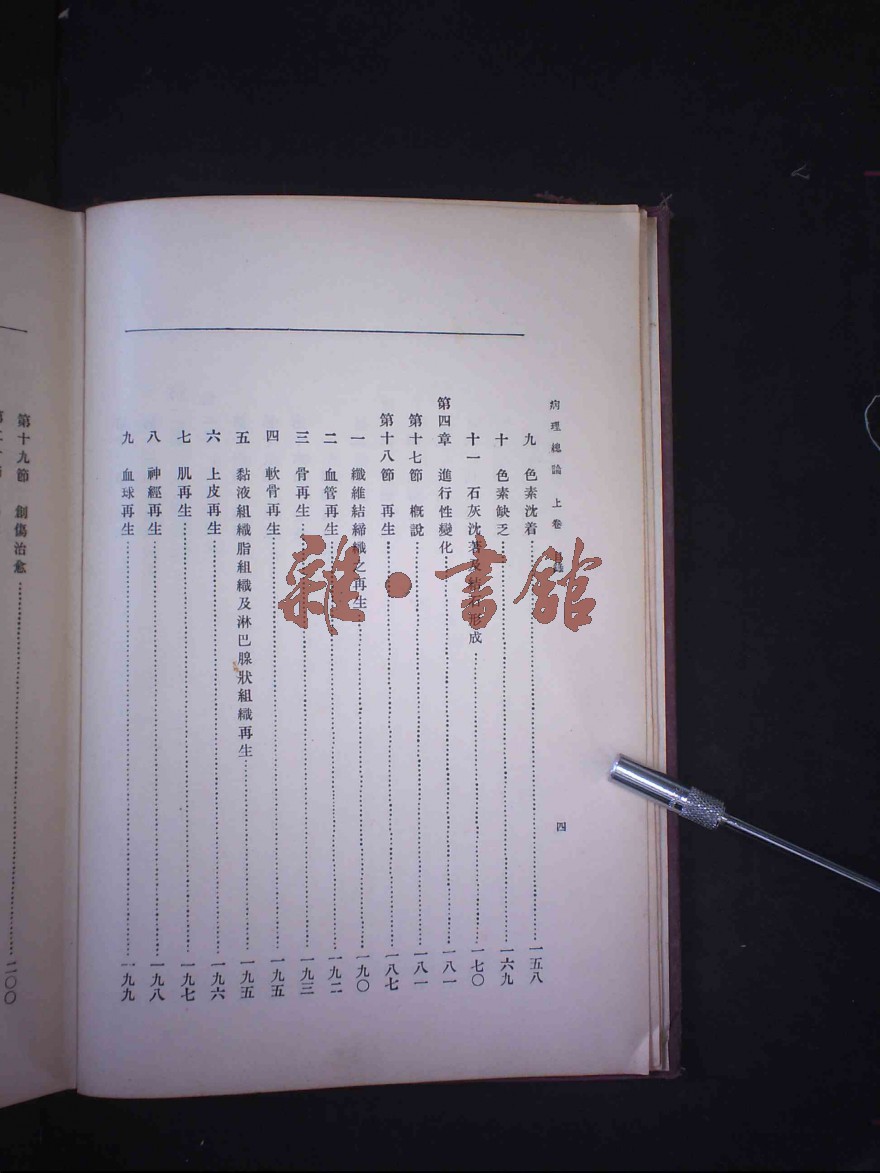 病理總論 上卷 目錄 四
九 色素沈着 一五八
十 色素缺乏 一六九
十一 石灰沈著及結石形成 一七〇
第四章 進行性變化 一八一
第十七節 概說 一八一
第十八節 再生 一八七
一 纖維結締織之再生 一九〇
二 血管再生 一九二
三 骨再生 一九三
四 軟骨再生 一九五
五 黏液組織脂組織及淋巴腺狀組織再生 一九五
六 上皮再生 一九六
七 肌再生 一九七
八 神經再生 一九八
九 血球再生 一九九
第十九節 創傷治愈 二〇〇
雜·書館